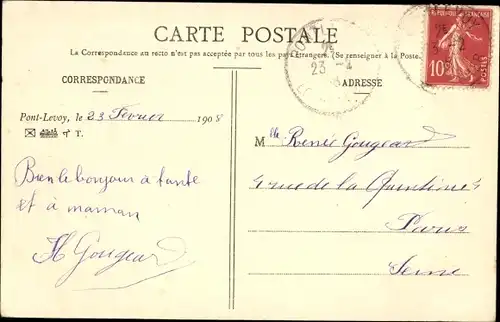 CARTE POSTALE
La Correspondance au recto n'est pas acceptée par tous les pays étrangers. (Se renseigner à la Poste.)
CORRESPONDANCE
ADRESSE
RÉPUBLIQUE FRANÇAISE
10c
POSTES
23 -4
Pont-Levoy, le 23 Février 1908
T.
Mlle Renée Gougeard
4 rue de la Quintinie
Paris
Seine
Bien le bonjour à tante
et à maman
H Gougeard